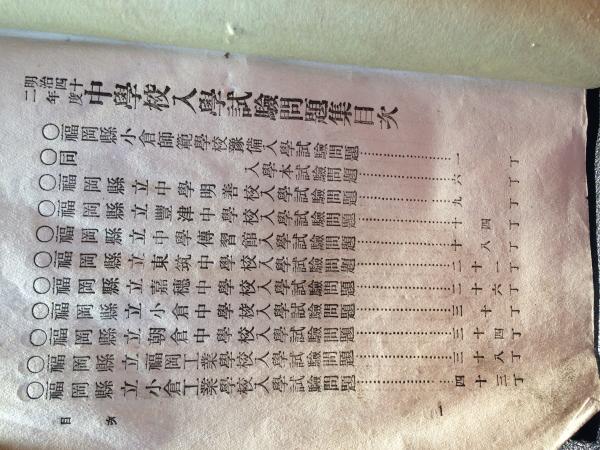 明治四十二年度 中學校入學試驗問題集目次
○福岡縣小倉師範學校豫備入學試驗問題……一丁
○同 入學本試驗問題……六丁
○福岡縣立中學明善校入學試驗問題……九丁
○福岡縣立豐津中學校入學試驗問題……十四丁
○福岡縣立中學傳習館入學試驗問題……十八丁
○福岡縣立東筑中學校入學試驗問題……二十一丁
○福岡縣立嘉穗中學校入學試驗問題……二十六丁
○福岡縣立小倉中學校入學試驗問題……三十丁
○福岡縣立朝倉中學校入學試驗問題……三十四丁
○福岡縣立福岡工業學校入學試驗問題……三十八丁
○福岡縣立小倉工業學校入學試驗問題……四十三丁
目次 一